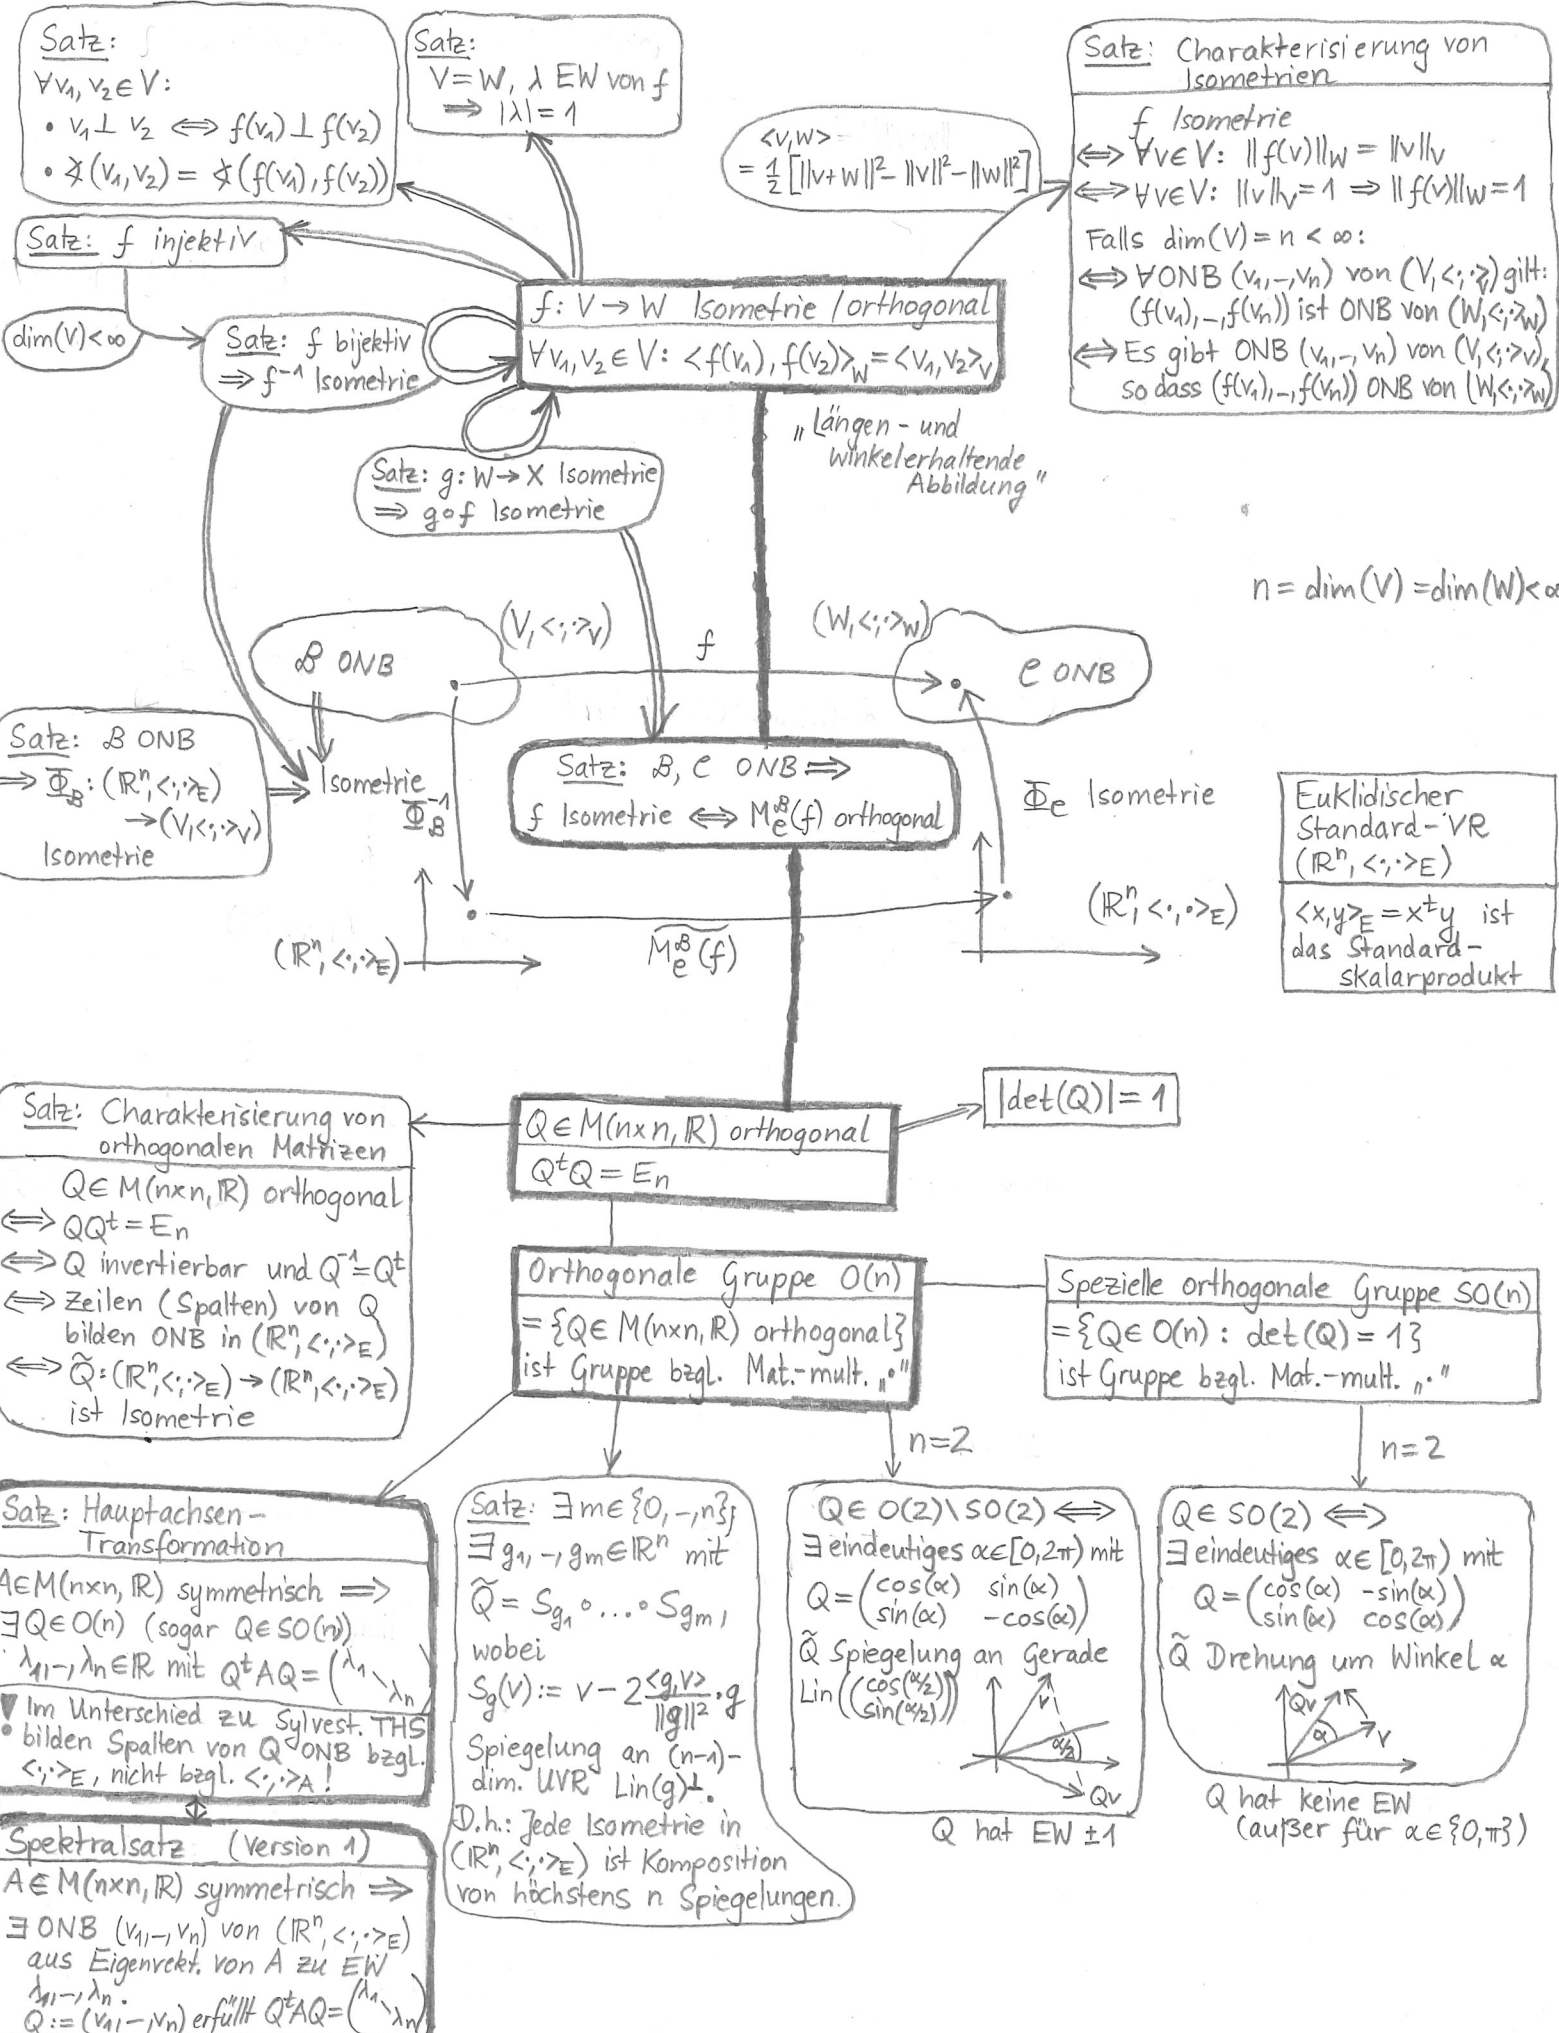 Satz:
∀v₁, v₂ ∈ V:
• v₁ ⊥ v₂ ⟺ f(v₁) ⊥ f(v₂)
• ∢(v₁, v₂) = ∢(f(v₁), f(v₂))
Satz:
V = W, λ EW von f
⟹ |λ| = 1
<v,w>
= 1/2 [||v+w||² - ||v||² - ||w||²]
Satz: Charakterisierung von
Isometrien
f Isometrie
⟺ ∀v∈V: ||f(v)||_W = ||v||_V
⟺ ∀v∈V: ||v||_V = 1 ⇒ ||f(v)||_W = 1
Falls dim(V) = n < ∞:
⟺ ∀ONB (v₁,–,vₙ) von (V,<·,·>_V) gilt:
(f(v₁),–,f(vₙ)) ist ONB von (W,<·,·>_W)
⟺ Es gibt ONB (v₁,–,vₙ) von (V,<·,·>_V),
so dass (f(v₁),–,f(vₙ)) ONB von (W,<·,·>_W)
Satz: f injektiv
dim(V) < ∞
Satz: f bijektiv
⟹ f⁻¹ Isometrie
f: V → W Isometrie / orthogonal
∀v₁, v₂ ∈ V: <f(v₁), f(v₂)>_W = <v₁, v₂>_V
„Längen- und
winkelerhaltende
Abbildung"
Satz: g: W → X Isometrie
⟹ g∘f Isometrie
n = dim(V) = dim(W) < ∞
B ONB
(V, <·,·>_V)
f
(W, <·,·>_W)
C ONB
Satz: B ONB
⟹ Φ_B: (ℝⁿ, <·,·>_E)
→ (V, <·,·>_V)
Isometrie
Isometrie
Φ_B⁻¹
Satz: B, C ONB ⟹
f Isometrie ⟺ M_C^B(f) orthogonal
Φ_C Isometrie
(ℝⁿ, <·,·>_E)
M̃_C^B(f)
(ℝⁿ, <·,·>_E)
Euklidischer
Standard-VR
(ℝⁿ, <·,·>_E)
<x,y>_E = xᵗy ist
das Standard-
skalarprodukt
Satz: Charakterisierung von
orthogonalen Matrizen
Q ∈ M(n×n, ℝ) orthogonal
⟺ QQᵗ = Eₙ
⟺ Q invertierbar und Q⁻¹ = Qᵗ
⟺ Zeilen (Spalten) von Q
bilden ONB in (ℝⁿ, <·,·>_E)
⟺ Q̃: (ℝⁿ, <·,·>_E) → (ℝⁿ, <·,·>_E)
ist Isometrie
Q ∈ M(n×n, ℝ) orthogonal
QᵗQ = Eₙ
|det(Q)| = 1
Orthogonale Gruppe O(n)
= {Q ∈ M(n×n, ℝ) orthogonal}
ist Gruppe bzgl. Mat.-mult. „·"
Spezielle orthogonale Gruppe SO(n)
= {Q ∈ O(n) : det(Q) = 1}
ist Gruppe bzgl. Mat.-mult. „·"
n=2
n=2
Satz: Hauptachsen-
Transformation
A ∈ M(n×n, ℝ) symmetrisch ⟹
∃Q ∈ O(n) (sogar Q ∈ SO(n))
λ₁,–,λₙ ∈ ℝ mit QᵗAQ = (λ₁ \ λₙ)
! Im Unterschied zu Sylvest. THS
bilden Spalten von Q ONB bzgl.
<·,·>_E, nicht bzgl. <·,·>_A !
Spektralsatz (Version 1)
A ∈ M(n×n, ℝ) symmetrisch ⟹
∃ ONB (v₁,–,vₙ) von (ℝⁿ, <·,·>_E)
aus Eigenvekt. von A zu EW
λ₁,–,λₙ.
Q := (v₁,–,vₙ) erfüllt QᵗAQ = (λ₁ \ λₙ)
Satz: ∃ m ∈ {0,–,n},
∃ g₁,–,gₘ ∈ ℝⁿ mit
Q̃ = S_g₁ ∘ ... ∘ S_gₘ,
wobei
S_g(v) := v - 2 <g,v>/||g||² · g
Spiegelung an (n-1)-
dim. UVR Lin(g)⊥.
D.h.: Jede Isometrie in
(ℝⁿ, <·,·>_E) ist Komposition
von höchstens n Spiegelungen.
Q ∈ O(2)\SO(2) ⟺
∃ eindeutiges α ∈ [0, 2π) mit
Q = (cos(α) sin(α)
sin(α) -cos(α))
Q̃ Spiegelung an Gerade
Lin((cos(α/2)
sin(α/2)))
v
α/2
Qv
Q hat EW ±1
Q ∈ SO(2) ⟺
∃ eindeutiges α ∈ [0, 2π) mit
Q = (cos(α) -sin(α)
sin(α) cos(α))
Q̃ Drehung um Winkel α
Qv
α
v
Q hat keine EW
(außer für α ∈ {0, π})